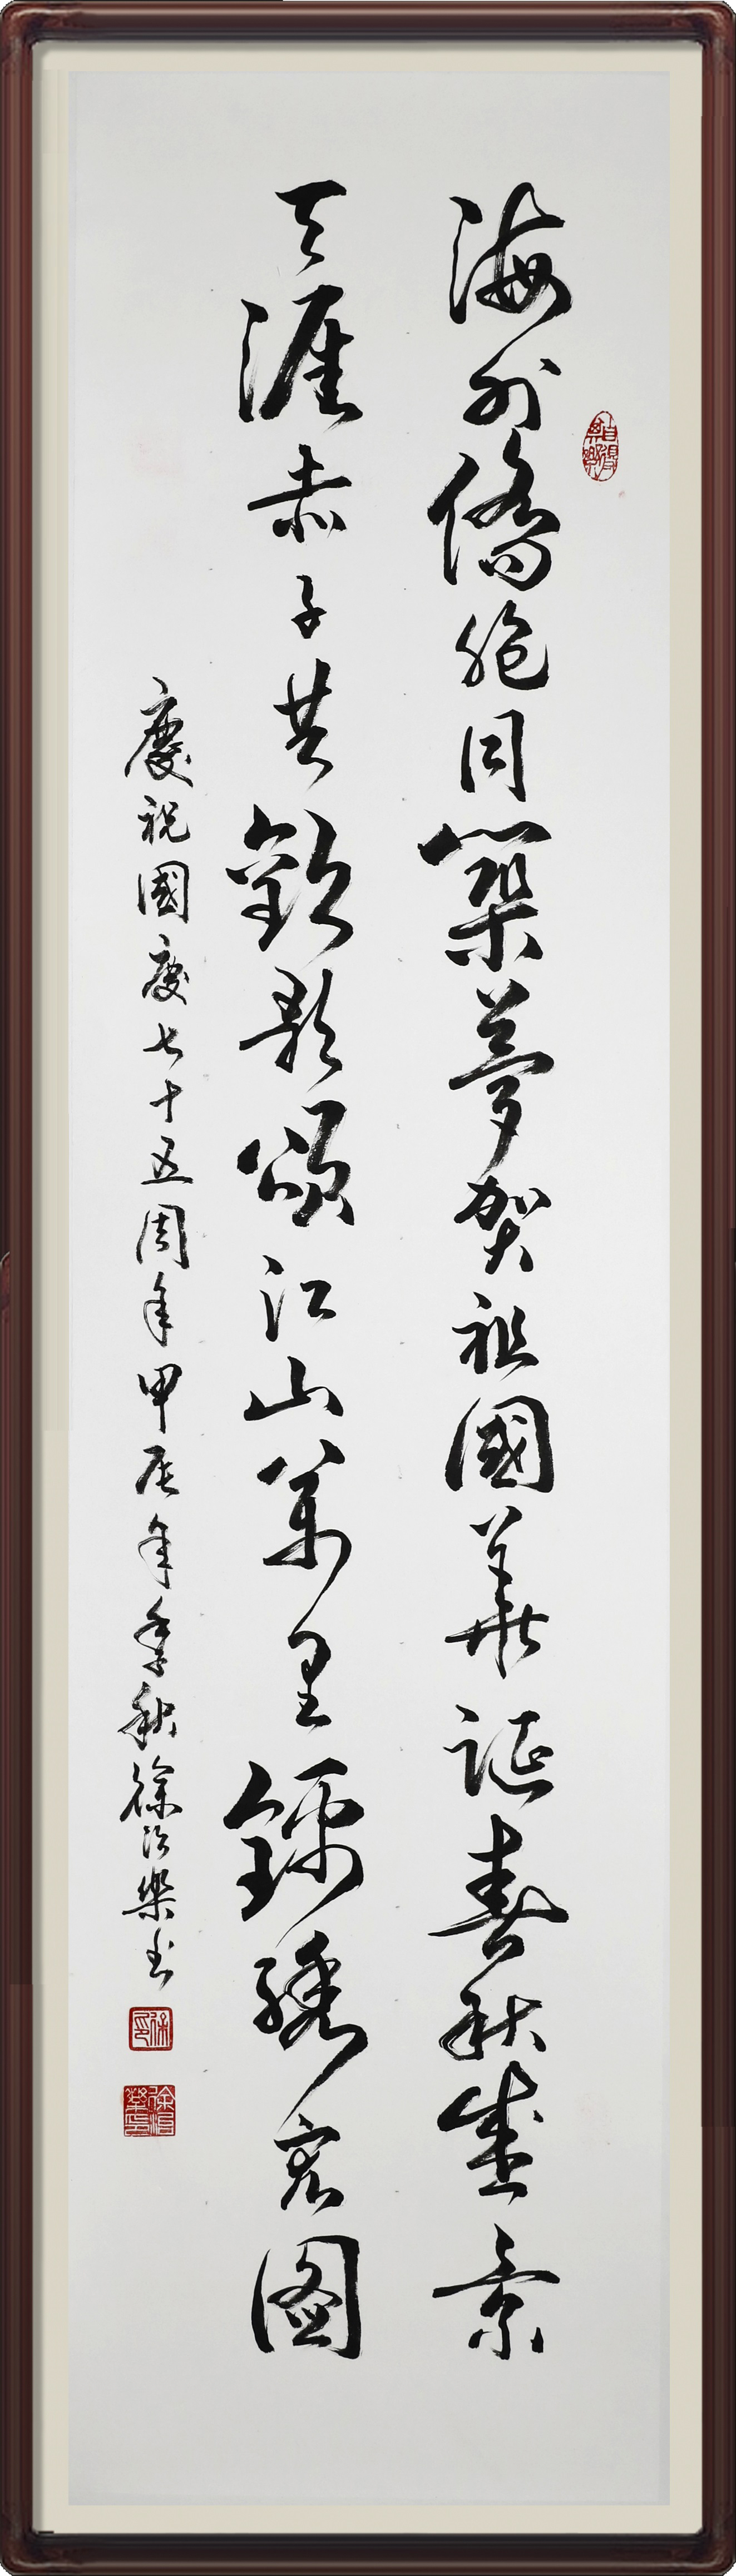 海外僑胞同築夢賀祖國華誕春秋盛景
天涯赤子共歡歌頌江山萬里錦繡宏圖
慶祝國慶七十五周年甲辰年季秋徐治樂書